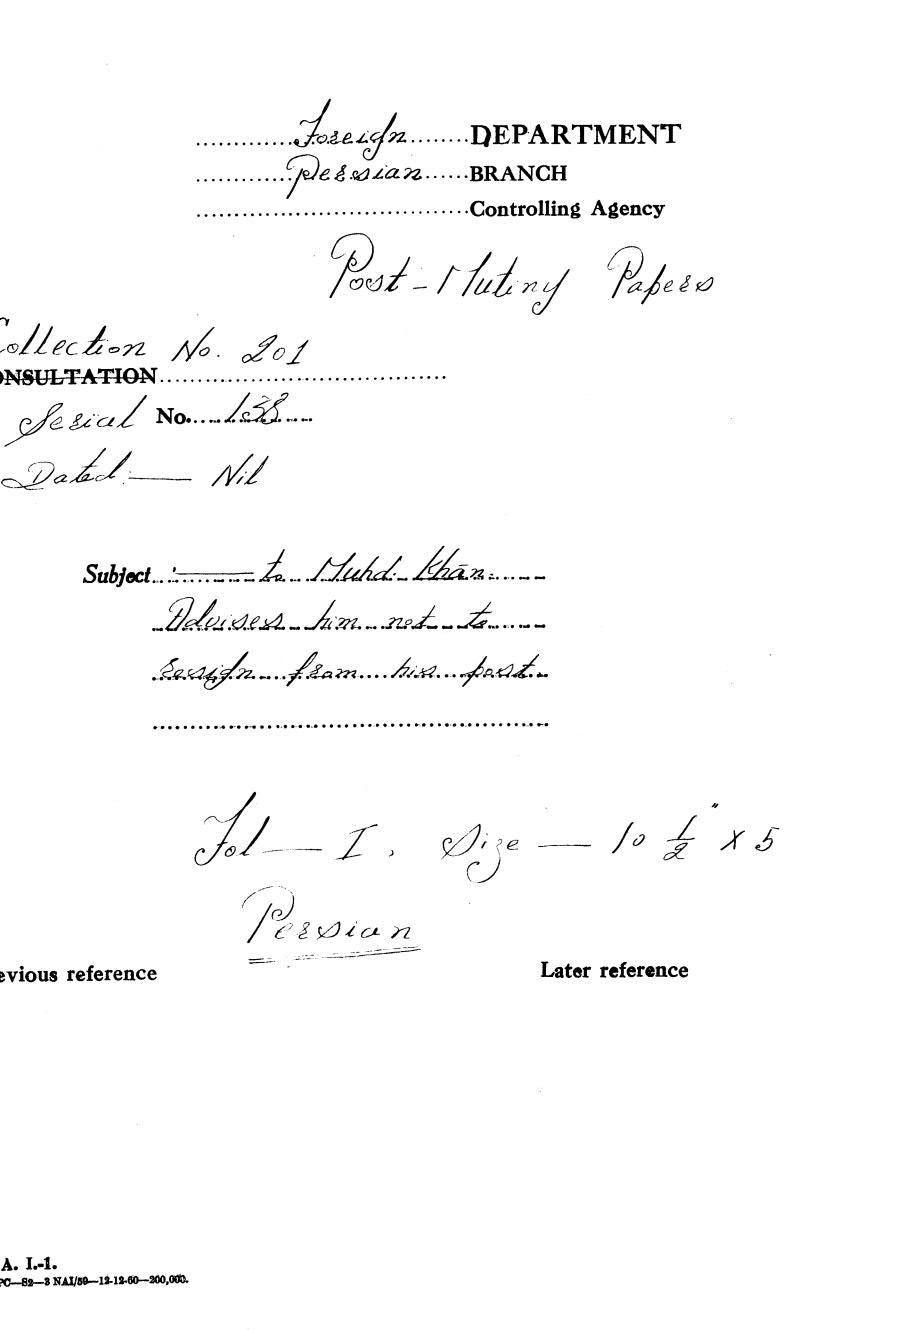 Foreign DEPARTMENT
Persian BRANCH
Controlling Agency
Post-Mutiny Papers
Collection No. 201
ONSULTATION
Serial No. 138
Dated — Nil
Subject :— to Muhd. Khān.
Advises him not to
resign from his post
Fol — I, Size — 10 1/2" X 5
Persian
evious reference Later reference
A. I.-1.
PC—S2—3 NAI/59—12-12-60—200,000.